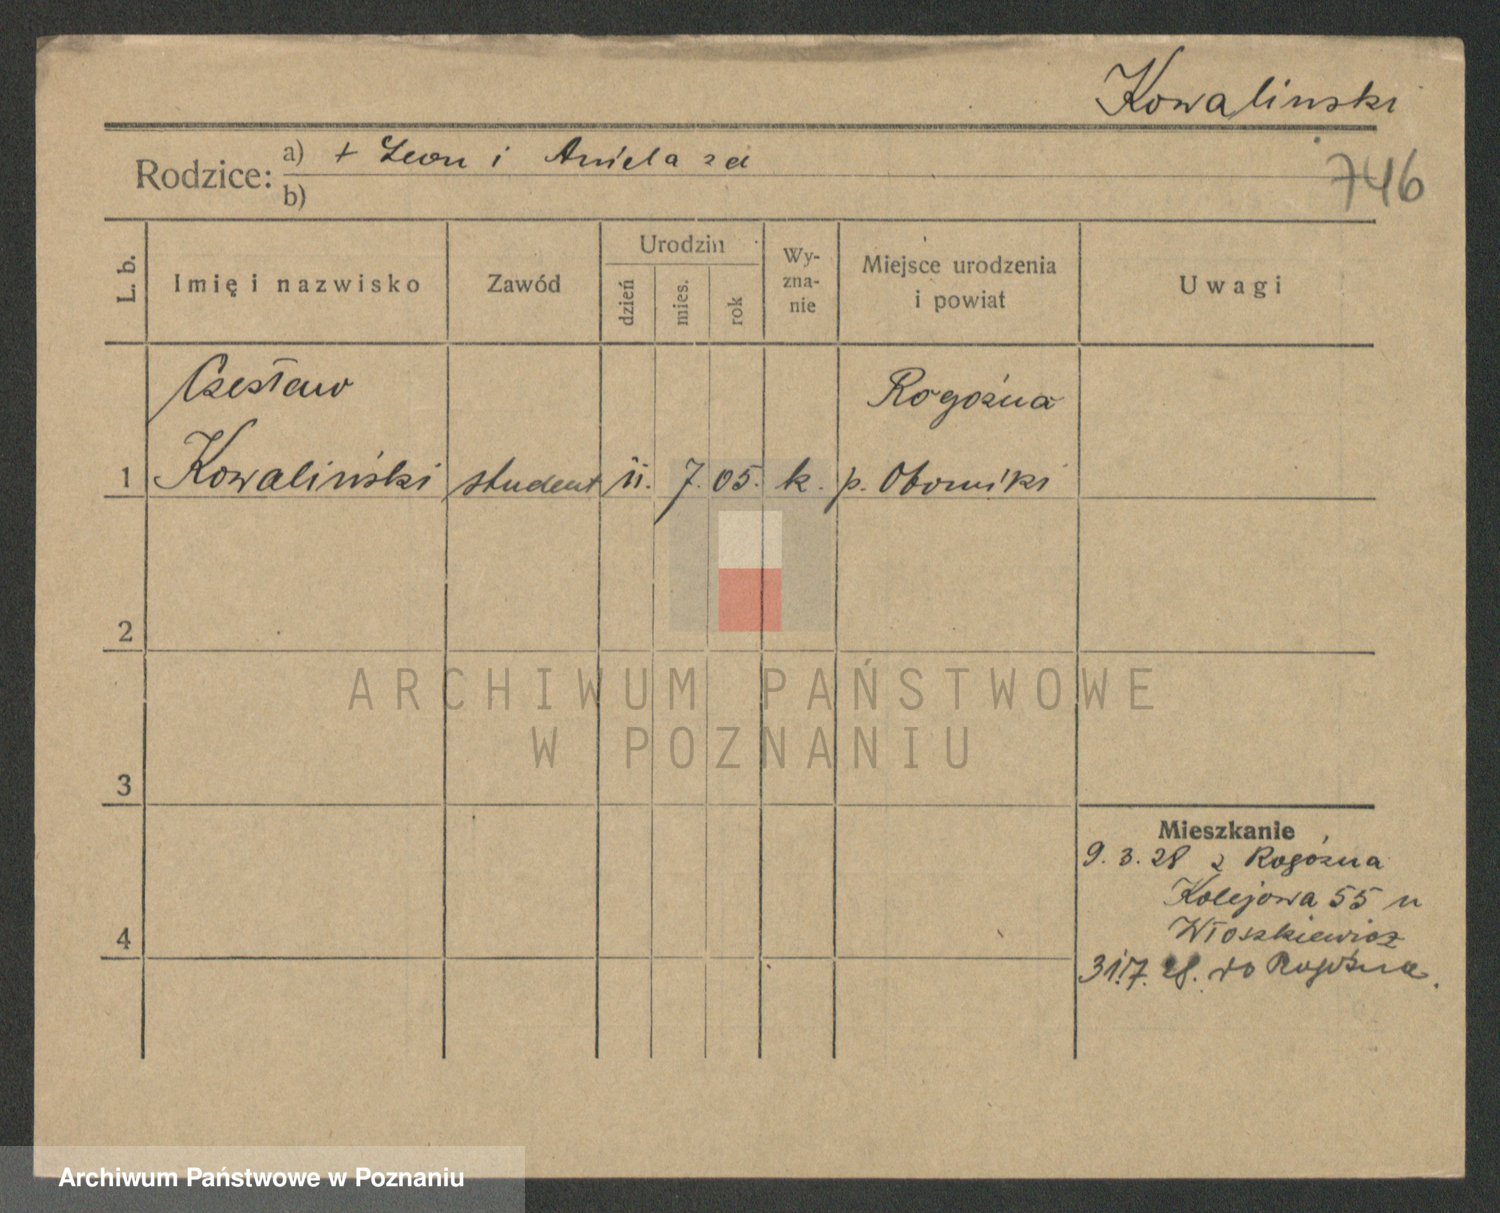 Kowalinski
Rodzice: a) + Leon i Aniela zd
b)
746
L. b.
Imię i nazwisko
Zawód
Urodzin
dzień
mies.
rok
Wy-
zna-
nie
Miejsce urodzenia
i powiat
Uwagi
Czesław
Rogoźna
1 Kowaliński student 11. 7. 05. k. p. Oborniki
2
3
4
Mieszkanie
9. 3. 28 z Rogoźna
Kolejowa 55 u
Włoszkiewicz
31.7. 28. do Rogoźna.
ARCHIWUM PAŃSTWOWE
W POZNANIU
Archiwum Państwowe w Poznaniu